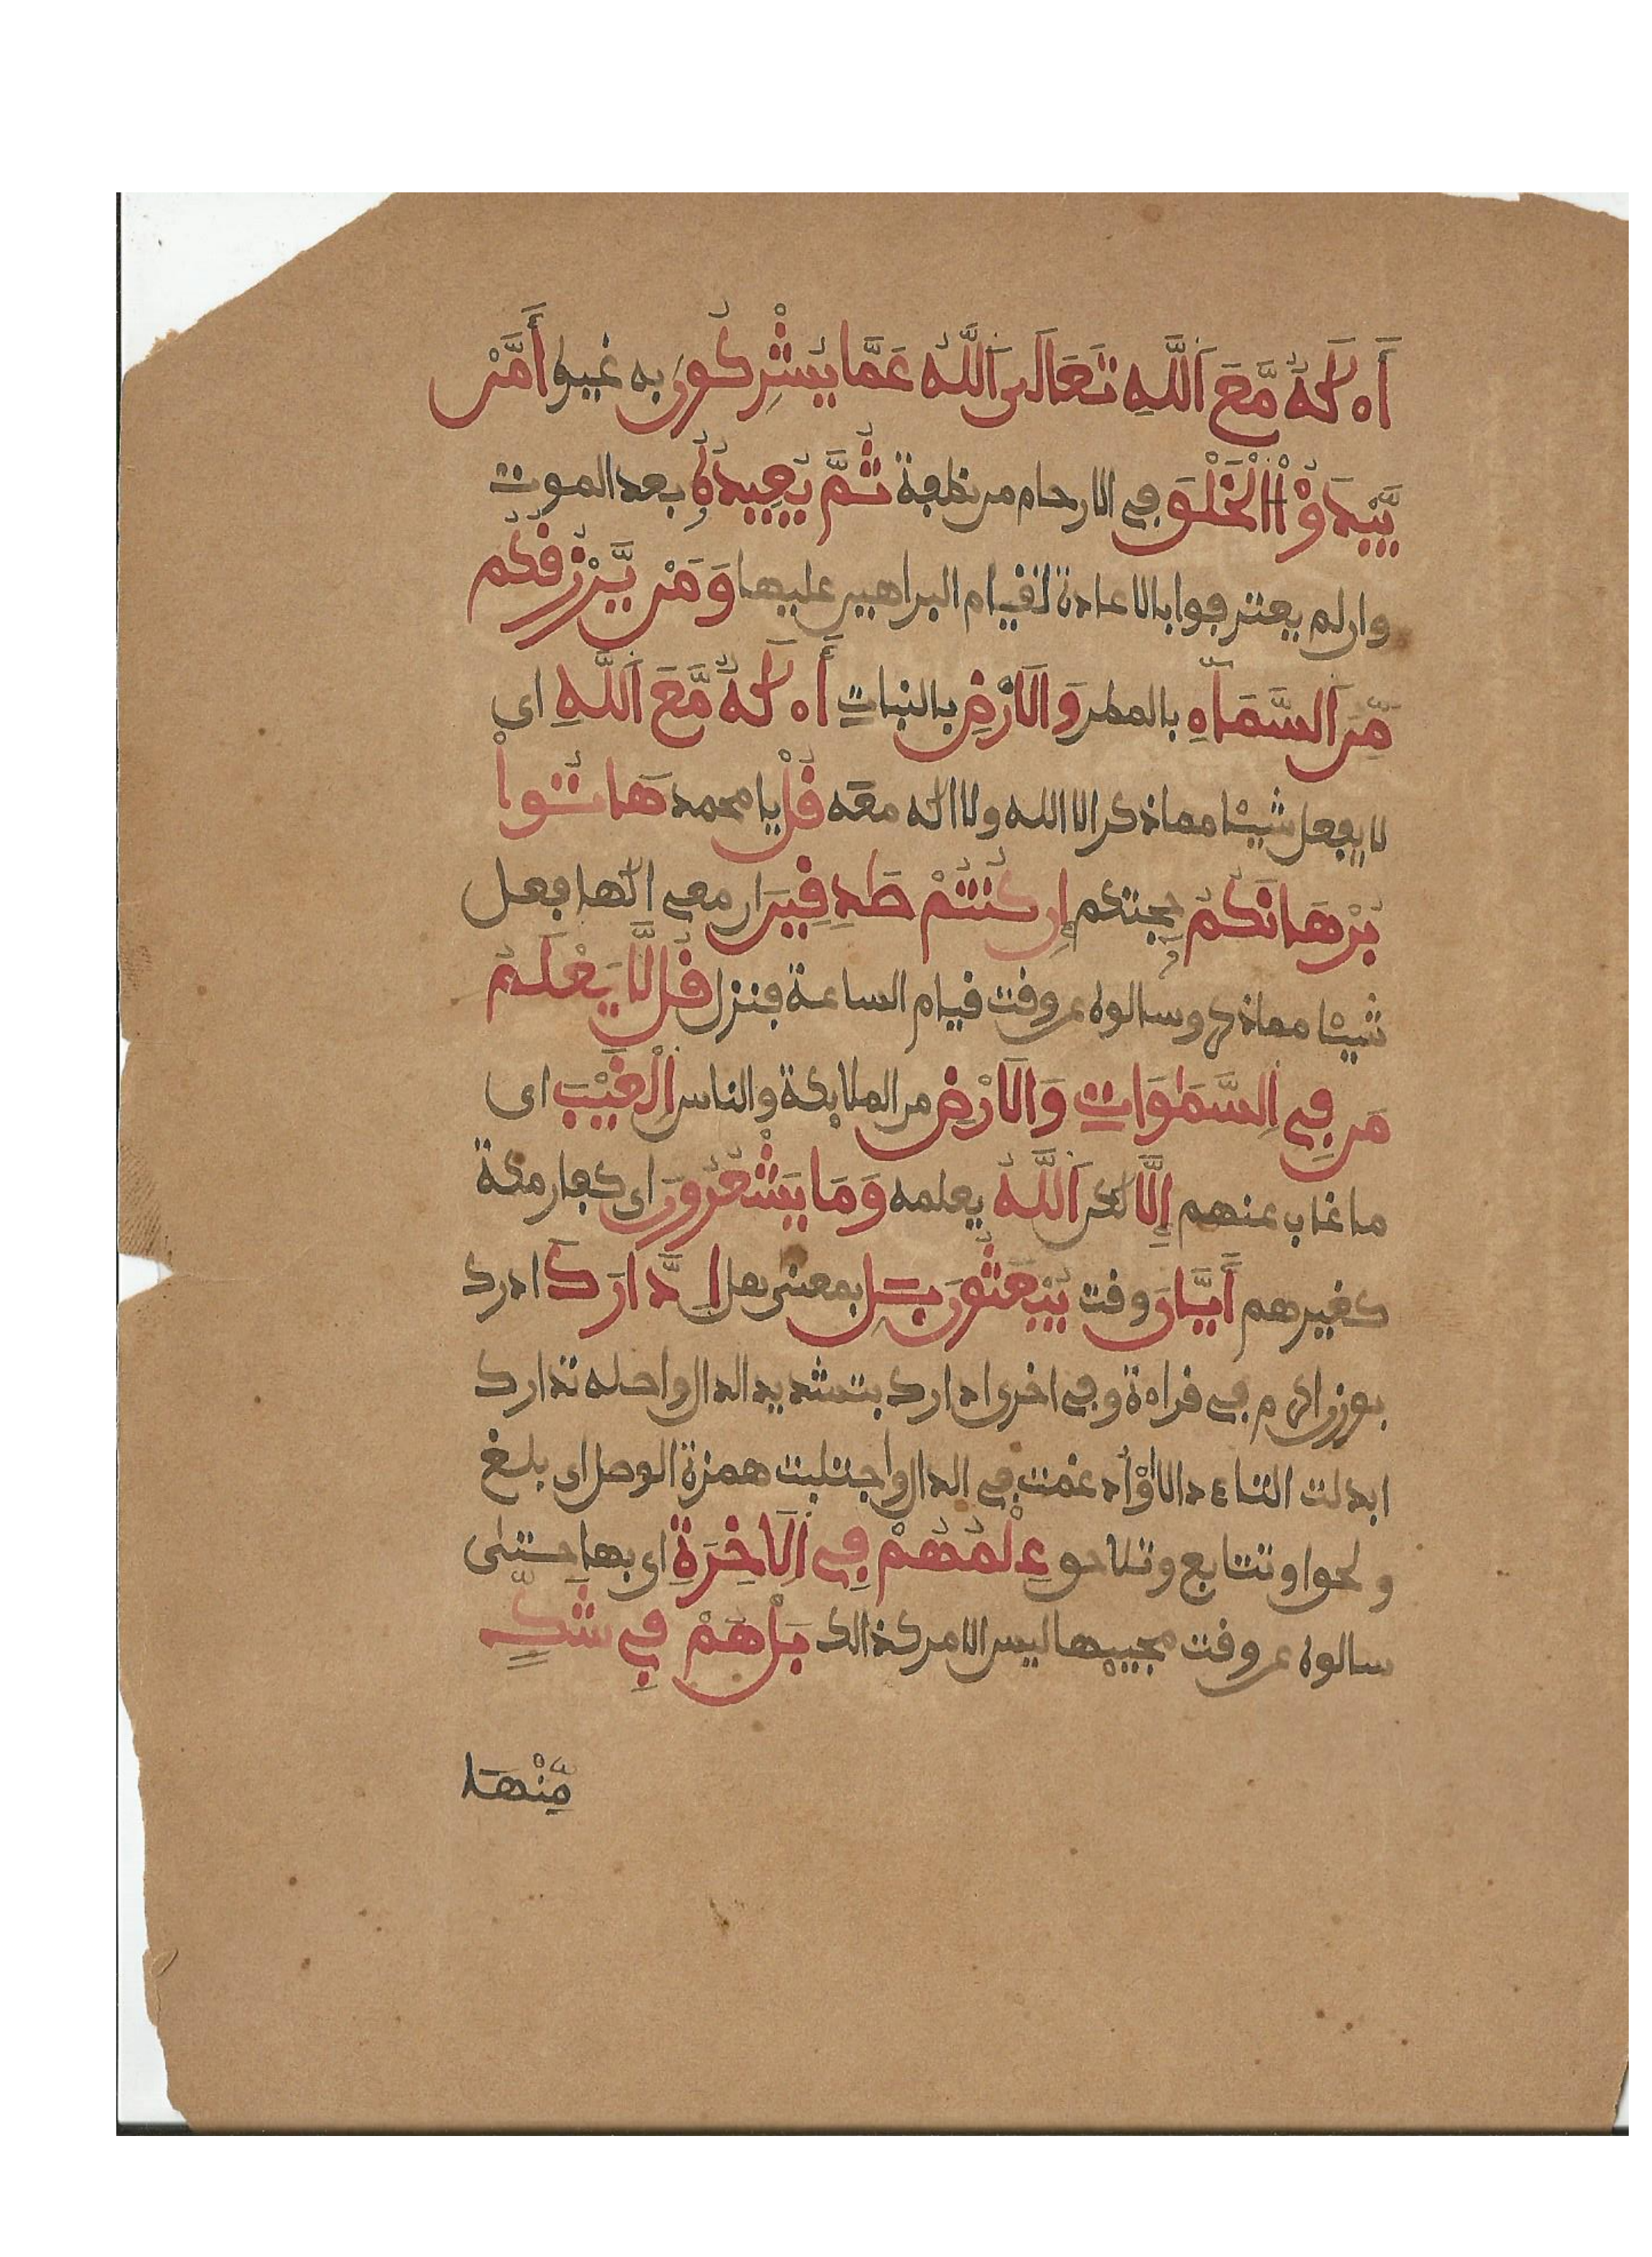 أَ.لَٰهٌ مَّعَ اَللَّهِ تَعَالَى اَللَّهُ عَمَّا يُشْرِكُونَ به غيره أَمَّنْ
يَّبْدَؤُاْ اَلْخَلْقَ في الارحام من نطفة ثُمَّ يُعِيدُهُ بعد الموت
وان لم يعترفوا بالاعادة لقيام البراهين عليها وَمَنْ يَّرْزُقُكُم
مِّنَ اَلسَّمَآءِ بالمطر وَالَارْضِ بالنبات أَ.لَٰهٌ مَّعَ اَللَّهِ اى
لا يفعل شيئا مما ذكر الا الله ولا اله معه قُلْ يا محمد هَاتُواْ
بُرْهَانَكُمْ حجتكم إِن كُنتُمْ صَٰدِقِينَ ان معى الها فعل
شيئا مما ذكر وسالوه عن وقت قيام الساعة فنزل قُل لَّا يَعْلَمُ
مَن فِى اِلسَّمَٰوَاتِ وَالَارْضِ من الملائكة والناس اِلْغَيْبَ اى
ما غاب عنهم إِلَّا لكن اَللَّهُ يعلمه وَمَا يَشْعُرُونَ اى كفار مكة
كغيرهم أَيَّانَ وقت يُبْعَثُونَ بَلِ بمعنى هل اِدَّٰرَكَ ادرك
بوزن اكرم في قراءة وفي اخرى ادارك بتشديد الدال واصله تدارك
ابدلت التاء دالا وأدغمت في الدال واجتلبت همزة الوصل اى بلغ
ولحق او تتابع وتلاحق عِلْمُهُمْ فِى اِلَاخِرَةِ اى بها حتى
سالوه عن وقت مجيها ليس الامر كذالك بَلْ هُمْ فِى شَكٍّ
مِّنْهَا